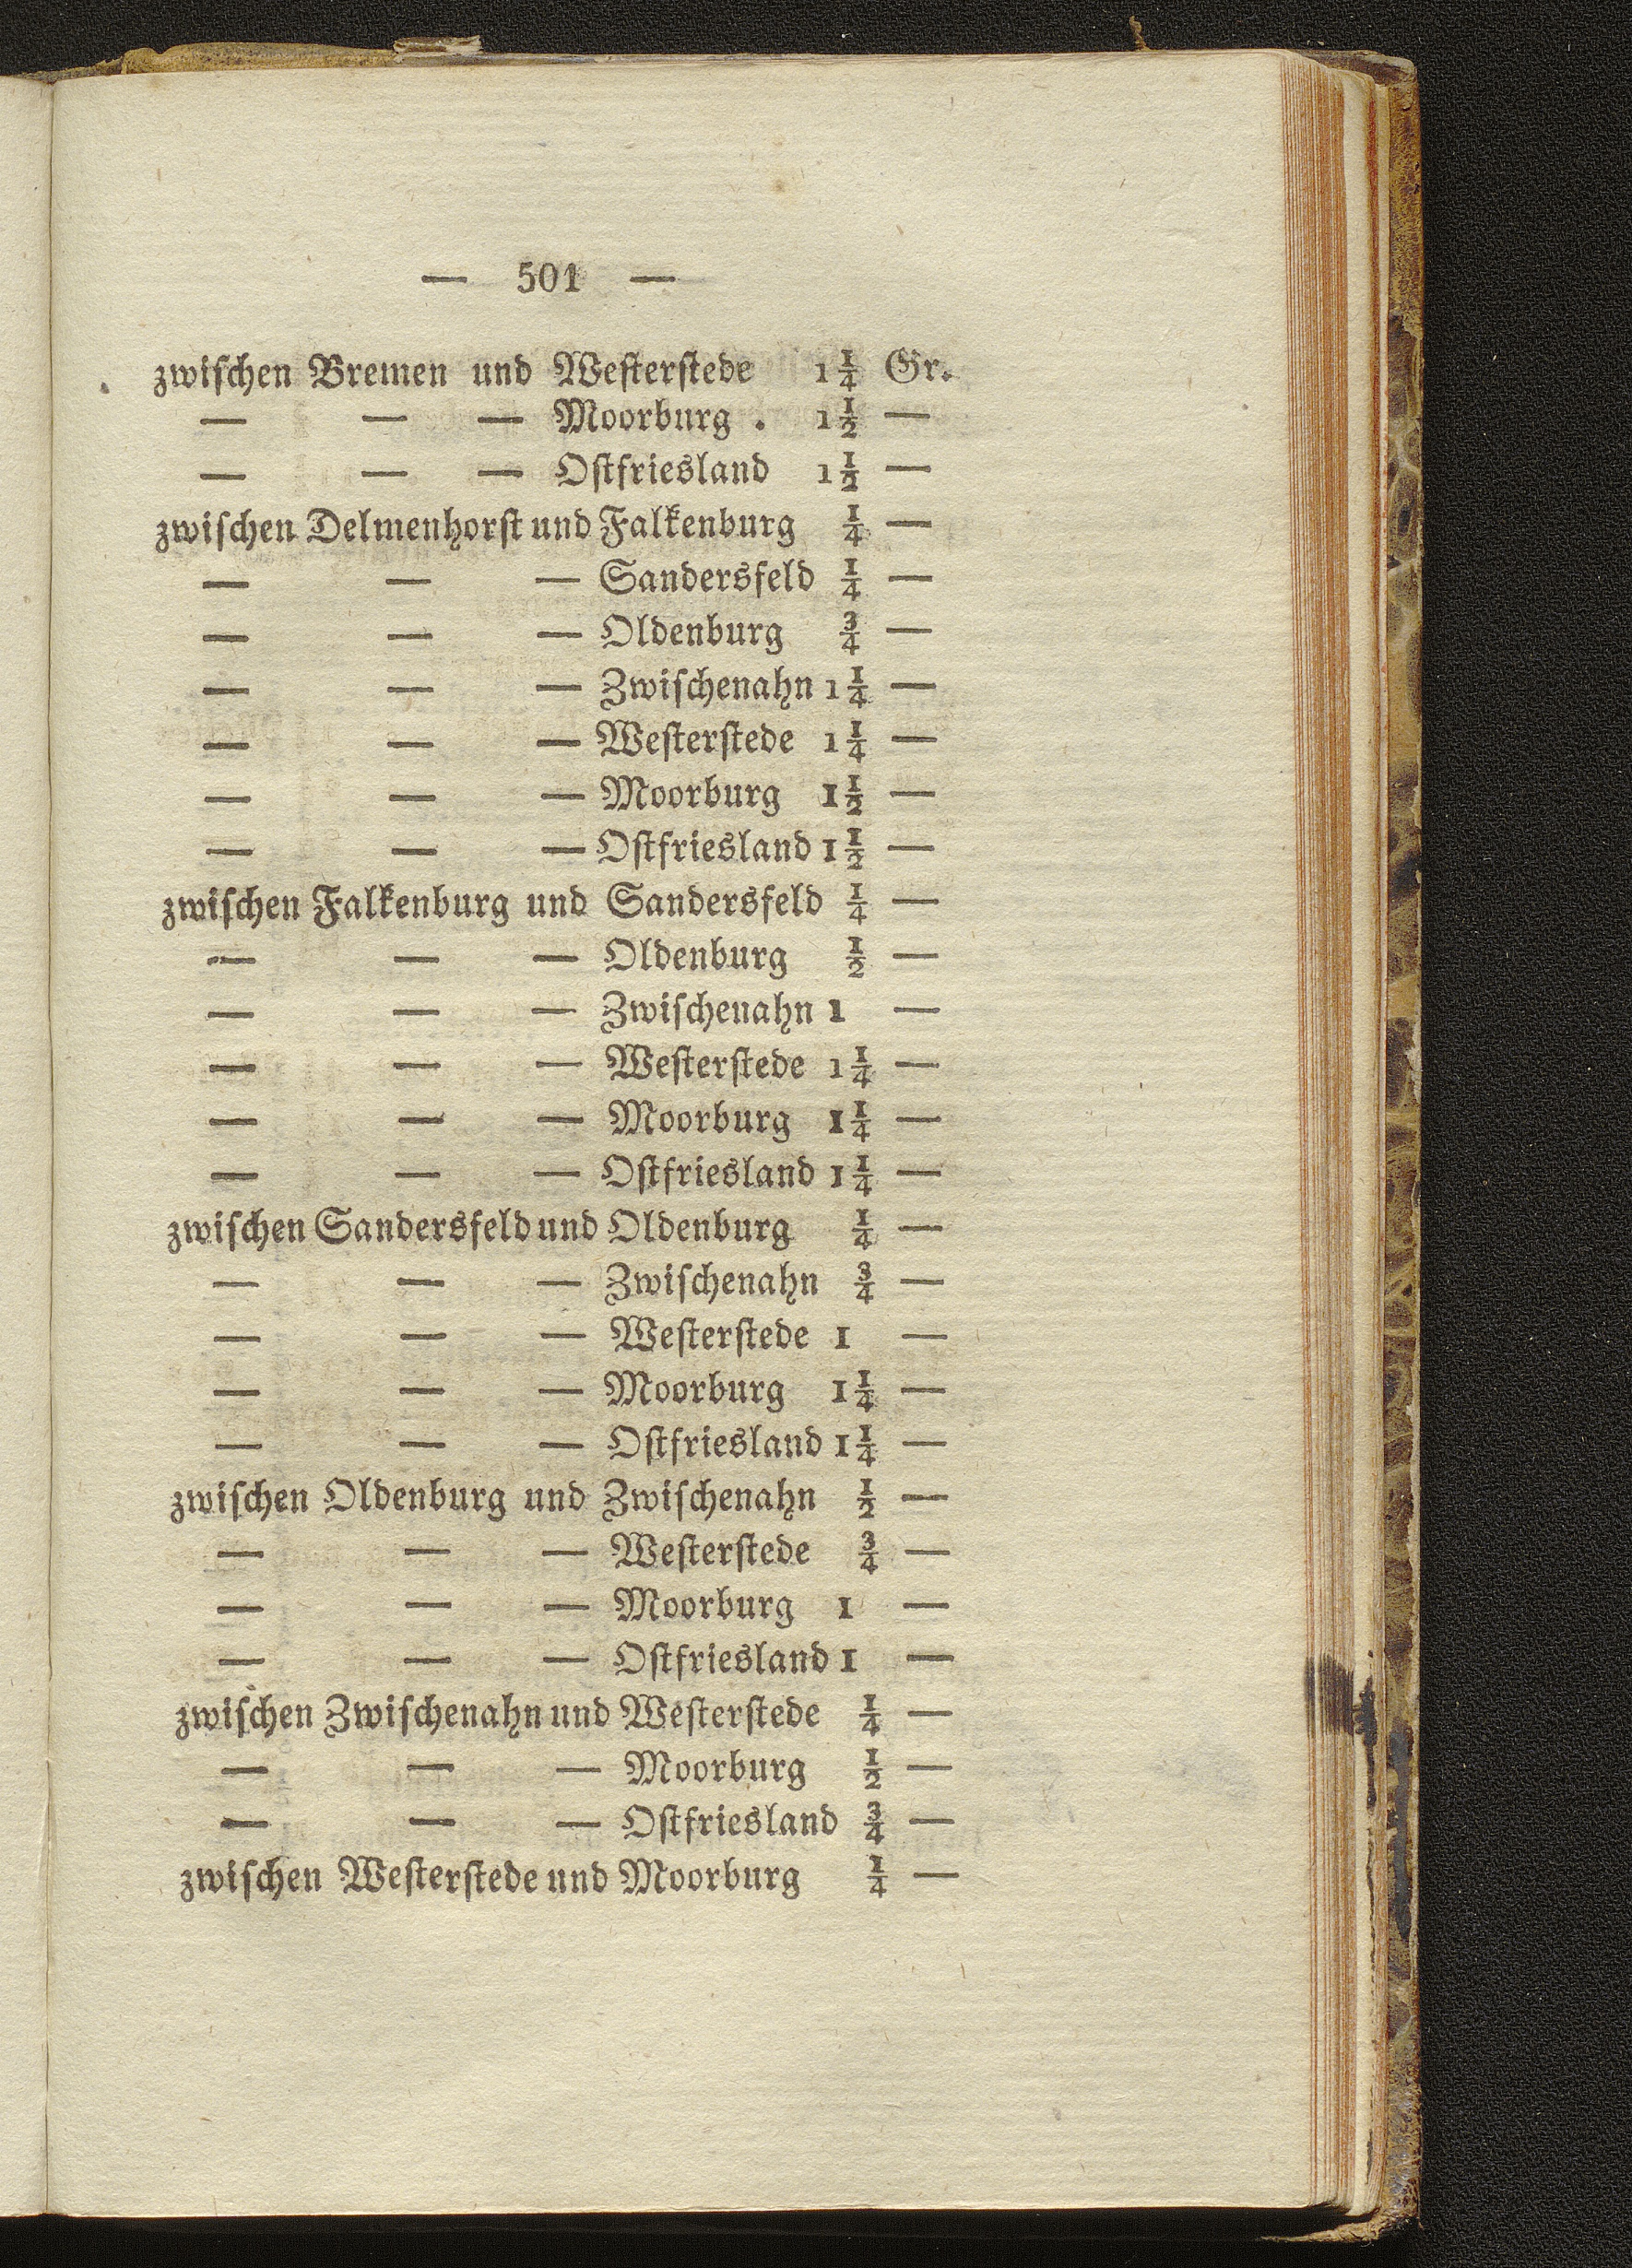 — 501 —
zwiſchen Bremen und Weſterſtede 1¼ Gr.
— — — Moorburg . 1½ —
— — — Oſtfriesland 1½ —
zwiſchen Delmenhorſt und Falkenburg ¼ —
— — — Sandersfeld ¼ —
— — — Oldenburg ¾ —
— — — Zwiſchenahn 1¼ —
— — — Weſterſtede 1¼ —
— — — Moorburg 1½ —
— — — Oſtfriesland 1½ —
zwiſchen Falkenburg und Sandersfeld ¼ —
— — — Oldenburg ½ —
— — — Zwiſchenahn 1 —
— — — Weſterſtede 1¼ —
— — — Moorburg 1¼ —
— — — Oſtfriesland 1¼ —
zwiſchen Sandersfeld und Oldenburg ¼ —
— — — Zwiſchenahn ¾ —
— — — Weſterſtede 1 —
— — — Moorburg 1¼ —
— — — Oſtfriesland 1¼ —
zwiſchen Oldenburg und Zwiſchenahn ½ —
— — — Weſterſtede ¾ —
— — — Moorburg 1 —
— — — Oſtfriesland 1 —
zwiſchen Zwiſchenahn und Weſterſtede ¼ —
— — — Moorburg ½ —
— — — Oſtfriesland ¾ —
zwiſchen Weſterſtede und Moorburg ¼ —